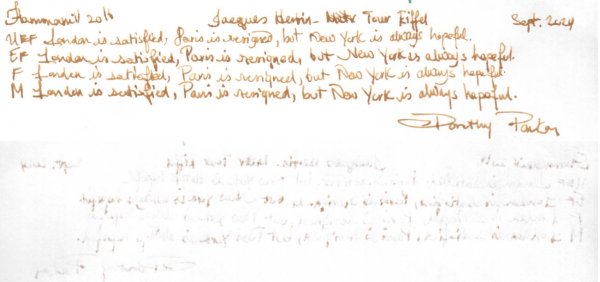 Hammermill 20lb Jacques Herbin - Tour Eiffel Sept. 2024
UEF London is satisfied, Paris is resigned, but New York is always hopeful.
EF London is satisfied, Paris is resigned, but New York is always hopeful.
F London is satisfied, Paris is resigned, but New York is always hopeful.
M London is satisfied, Paris is resigned, but New York is always hopeful.
Dorothy Parker